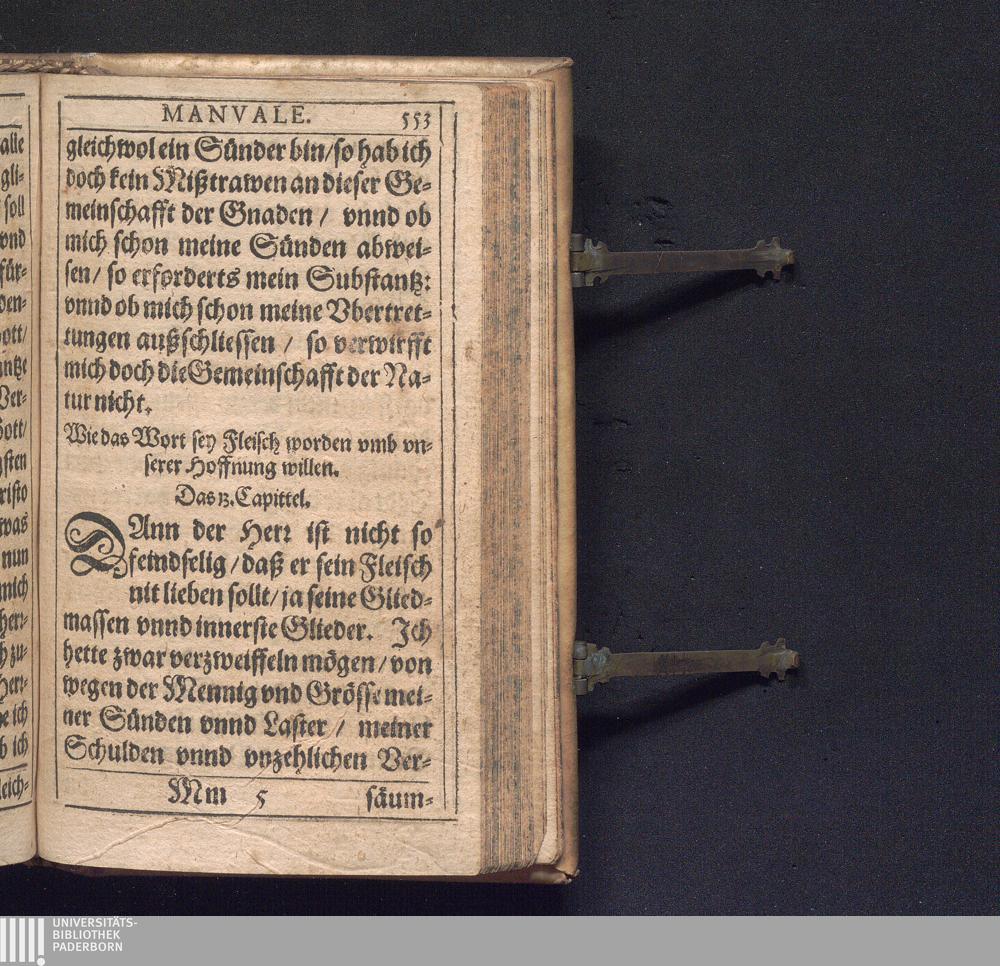 alle
gli-
soll
vnd
für-
den-
ott/
ntze
Ver-
Gott/
gsten
risto
was
nun
mich
her:
h zu-
Her:
e ich
b ich
leich-
MANVALE. 553
gleichwol ein Sünder bin/so hab ich
doch kein Mißtrawen an dieser Ge-
meinschafft der Gnaden / vnnd ob
mich schon meine Sünden abwei-
sen/ so erforderts mein Substantz:
vnnd ob mich schon meine Vbertret-
tungen außschliessen / so verwirfft
mich doch die Gemeinschafft der Na-
tur nicht.
Wie das Wort sey Fleisch worden vmb vn-
serer Hoffnung willen.
Das 13. Capittel.
DAnn der Herr ist nicht so
feindselig/daß er sein Fleisch
nit lieben sollt/ja seine Glied-
massen vnnd innerste Glieder. Ich
hette zwar verzweiffeln mögen/von
wegen der Mennig vnd Grösse mei-
ner Sünden vnnd Laster / meiner
Schulden vnnd vnzehlichen Ver-
Mm 5 säum-
UNIVERSITÄTS-
BIBLIOTHEK
PADERBORN